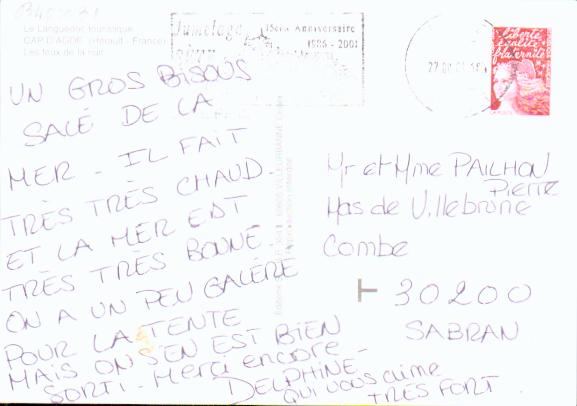 Le Languedoc touristique
CAP D'AGDE (Hérault - France)
Les feux de la nuit
Jumelage 15ème Anniversaire
1986 - 2001
liberté
égalité
fraternité
UN GROS BISOUS
SALÉ DE LA
MER - IL FAIT
TRÈS TRÈS CHAUD.
ET LA MER EST
TRÈS TRÈS BONNE.
ON A UN PEU GALÉRÉ
POUR LA TENTE
MAIS ON S'EN EST BIEN
SORTI. Merci encore -
DELPHINE
qui vous aime
TRÈS FORT.
Mr et Mme PAILHON
Pierre
Mas de Villebrune
Combe
30200
SABRAN